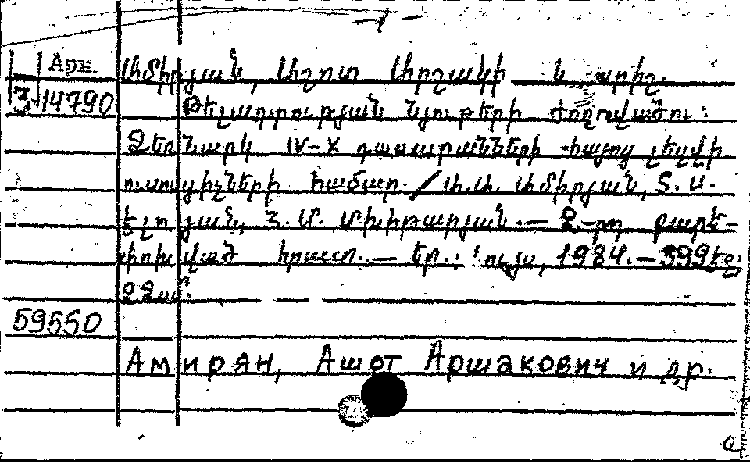 Арм.
Ամիրյան, Աշոտ Արշակի և ուրիշ.
3-14790
Թելադրության նյութերի ժողովածու:
Ձեռնարկ IV-X դասարանների հայոց լեզվի
ուսուցիչների համար / Ա.Ա. Ամիրյան, Տ. Ս.
Էլոյան, Հ. Մ. Մխիթարյան.— 2-րդ բարե-
փոխված հրատ.— Եր.: Լույս, 1984.—399 էջ;
59550
Амирян, Ашот Аршакович и др.